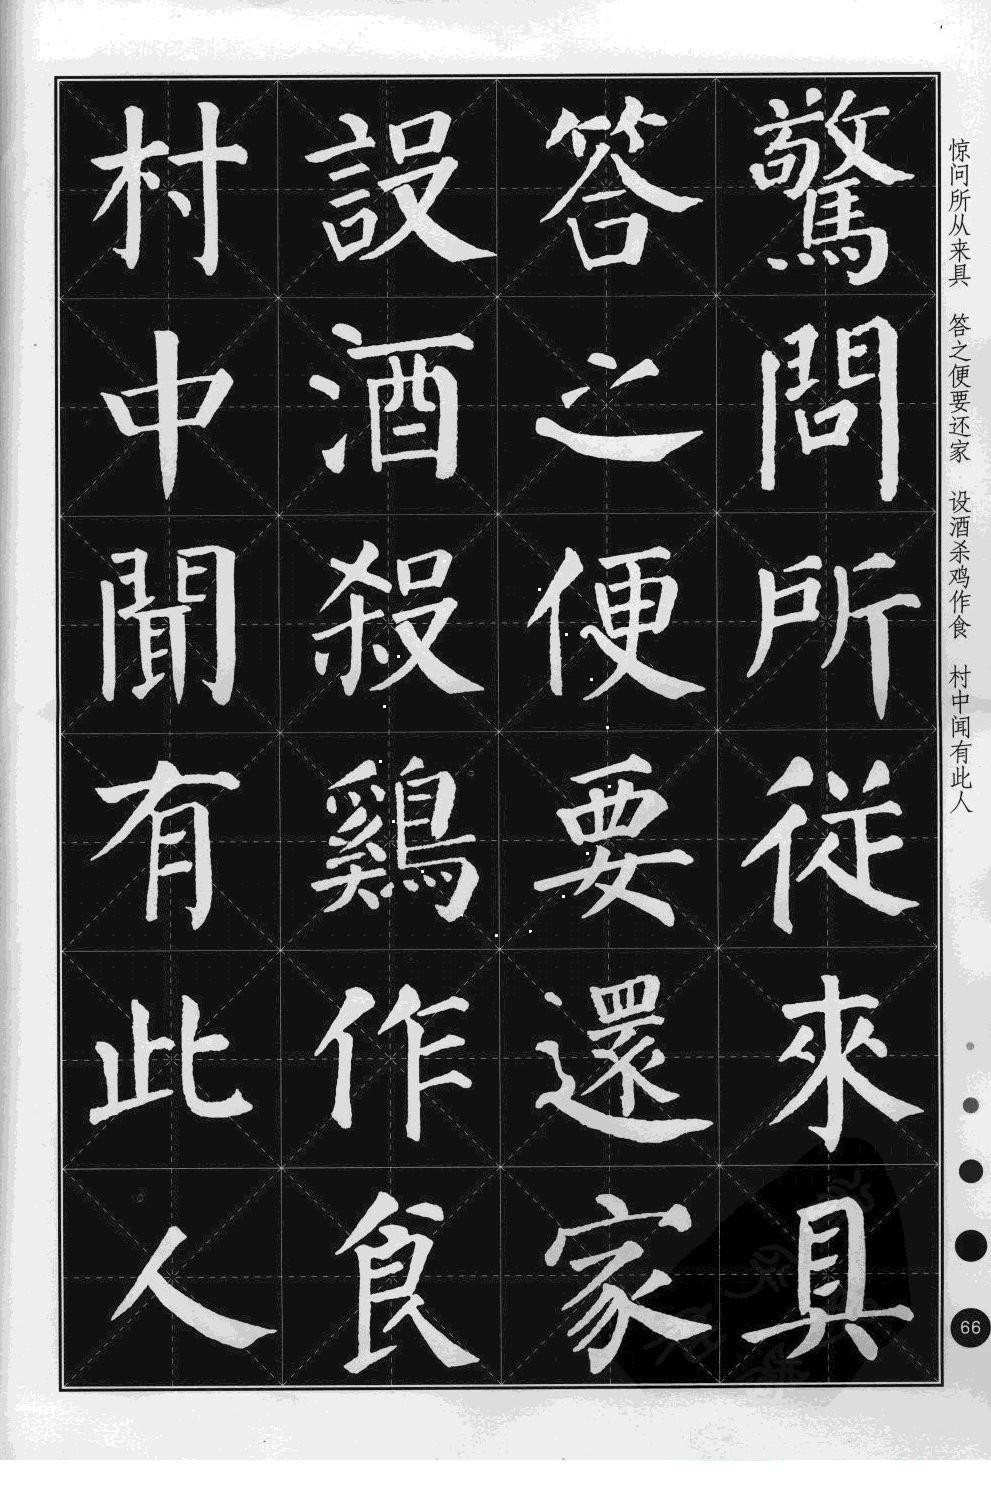 驚問所從來具
答之便要還家
設酒殺鷄作食
村中聞有此人
惊问所从来具 答之便要还家 设酒杀鸡作食 村中闻有此人
66